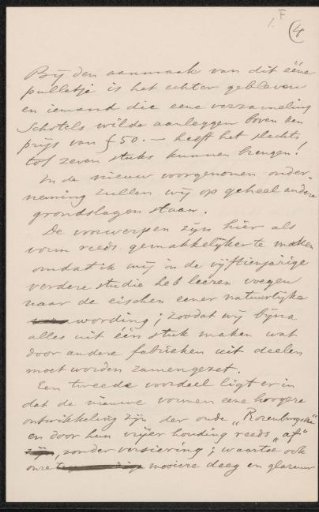 1. F
(4
Bij den aanmaak van dit ééne
pulletje is het echter gebleven
en iemand die eene verzameling
Schotels wilde aanleggen boven een
prijs van f 50.— heeft het slechts
tot zeven stuks kunnen brengen!
In de nieuw voorgenomen onder-
neming zullen wij op geheel andere
grondslagen staan.
De voorwerpen zijn hier als
vorm reeds gemakkelijker te maken
omdat ik mij in de vijftienjarige
verdere studie heb leeren voegen
naar de eischen eener natuurlijke
wording; zoodat wij bijna
alles uit één stuk maken wat
door andere fabrieken uit deelen
moet worden zamengezet.
Een tweede voordeel ligt er in
dat de nieuwe vormen eene hoogere
ontwikkeling zijn der oude „Rozenburgsche"
en door hun vrijer houding reeds „af"
zijn, zonder versiering; waartoe ook
onze mooiere deeg en glazuur